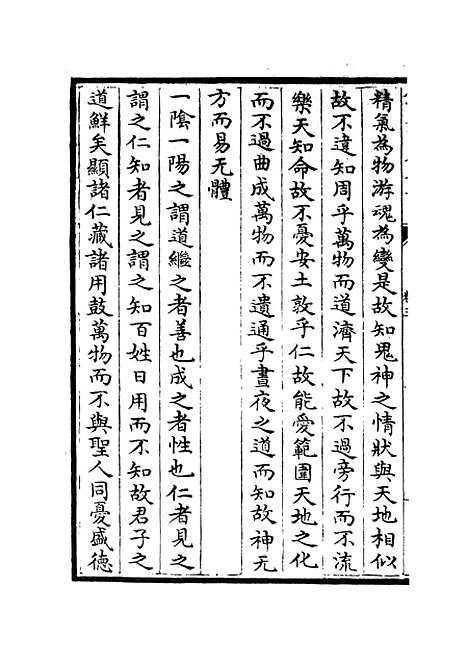 精氣為物游魂為變是故知鬼神之情狀與天地相似
故不違知周乎萬物而道濟天下故不過旁行而不流
樂天知命故不憂安土敦乎仁故能愛範圍天地之化
而不過曲成萬物而不遺通乎晝夜之道而知故神无
方而易无體
一陰一陽之謂道繼之者善也成之者性也仁者見之
謂之仁知者見之謂之知百姓日用而不知故君子之
道鮮矣顯諸仁藏諸用鼓萬物而不與聖人同憂盛德